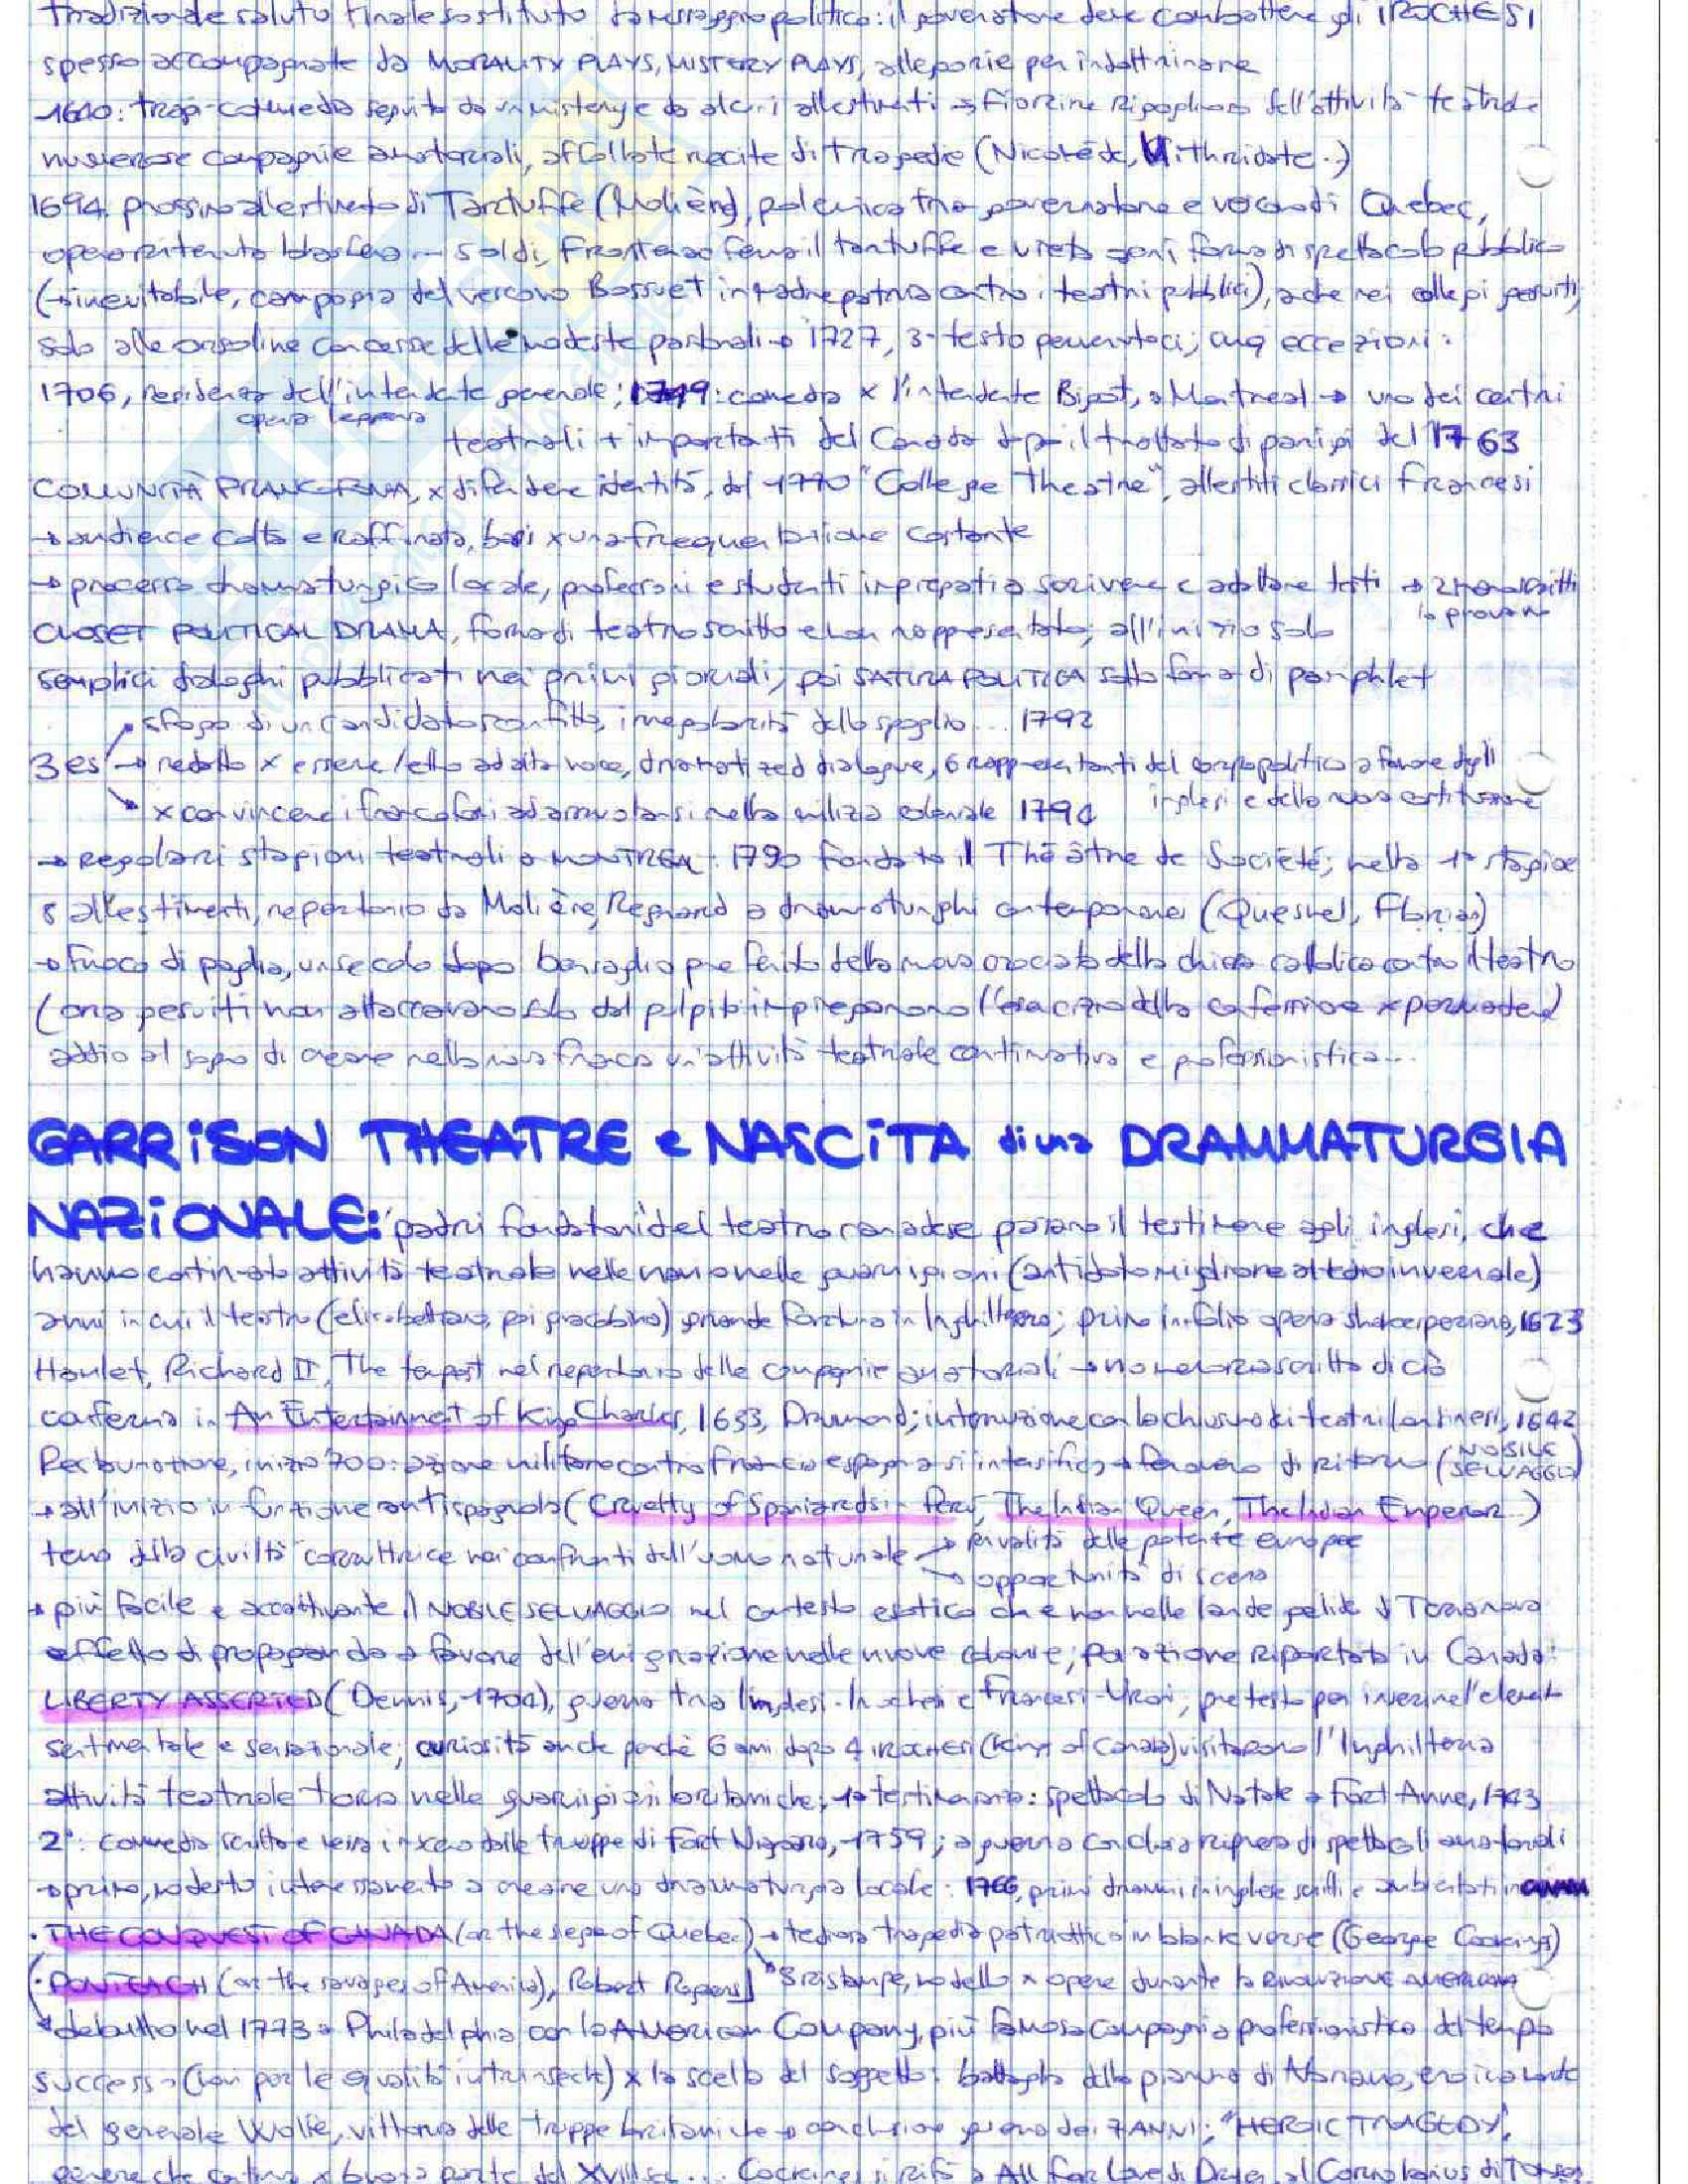 Tradizionale saluto finale sostituito da messaggio politico: il governatore deve combattere gli IROCHESI
spesso accompagnate da MORALITY PLAYS, MISTERY PLAYS, allegorie per indottrinare
1640: tragi-commedia seguita da un mistery e da alcuni allestimenti → fiorire rigoglioso dell'attività teatrale
numerose compagnie amatoriali, affollate recite di tragedie (Nicomède, Mithridate..)
1694: prossimo allestimento di Tartuffe (Molière), polemica tra governatore e vescovo di Quebec,
opera ritenuta blasfema → soldi, Frontenac ferma il tartuffe e vieta ogni forma di spettacolo pubblico
(→ inevitabile, campagna del vescovo Bossuet in madrepatria contro i teatri pubblici), anche nei collegi gesuiti,
solo alle orsoline concesse delle modeste pastorali → 1727, 3 testo pervenutoci; cmq eccezioni:
1706, residenza dell'intendente generale; 1749: comedia x l'intendente Bigot, a Montreal → uno dei centri
opera leggera
teatrali + importanti del Canada dopo il trattato di parigi del 1763
COMUNITÀ FRANCOFONA, x difendere identità, dal 1770 "College Theatre", allestiti classici francesi
→ audience colta e raffinata, basi x una frequentazione costante
→ processo drammaturgico locale, professori e studenti impegnati a scrivere e adattare testi → 2 manoscritti
lo provano
CLOSET POLITICAL DRAMA, forma di teatro scritto e non rappresentato; all'inizio solo
semplici dialoghi pubblicati nei primi giornali, poi SATIRA POLITICA sotto forma di pamphlet
→ sfogo di un candidato sconfitto, irregolarità dello spoglio... 1792
3 es → redatto x essere letto ad alta voce, dramatized dialogue, 6 rappresentanti del corpo politico a favore degli
inglesi e della nuova costituzione
→ x convincere i francofoni ad arruolarsi nella milizia coloniale 1794
→ Regolari stagioni teatrali a MONTREAL: 1790 fondato il Théâtre de Société; nella 1° stagione
allestimenti, repertorio da Molière, Regnard a drammaturghi contemporanei (Quesnel, Florian)
→ fuoco di paglia, un secolo dopo bersaglio preferito della nuova crociata della chiesa cattolica contro il teatro
(ora gesuiti non attaccavano solo dal pulpito impiegarono l'esercizio della confessione x persuadere)
addio al sogno di creare nella nuova francia un'attività teatrale continuativa e professionistica...
GARRISON THEATRE e NASCITA di una DRAMMATURGIA
NAZIONALE: padri fondatori del teatro canadese passano il testimone agli inglesi, che
hanno continuato attività teatrale nelle navi o nelle guarnigioni (antidoto migliore al tedio invernale)
anni in cui il teatro (elisabettiano, poi giacobino) grande fortuna in Inghilterra; primo in-folio opera shakespeariana, 1623
Hamlet, Richard II, The tempest nel repertorio delle compagnie amatoriali → no memoria scritta di ciò
conferma in An Entertainment of King Charles, 1633, Drummond; interruzione con la chiusura dei teatri londinesi, 1642
Restaurazione, inizio '700: azione militare contro Francia e spagna si intensifica → fenomeno di ritorno (NOBILE
SELVAGGIO)
→ all'inizio in funzione antispagnola (Cruelty of Spaniards in Peru, The Indian Queen, The Indian Emperor...)
tema della civiltà corruttrice nei confronti dell'uomo naturale → rivalità delle potenze europee
→ opportunità di scena
→ più facile e accattivante il NOBILE SELVAGGIO nel contesto esotico che non nelle lande gelide di Terranova
effetto di propaganda a favore dell'emigrazione nelle nuove colonie; poi azione riportata in Canada:
LIBERTY ASSERTED (Dennis, 1704), guerra tra Inglesi-Irochesi e Francesi-Uroni, pretesto per inserire l'elemento
sentimentale e sensazionale; curiosità anche perchè 6 anni dopo 4 IROCHESI (Kings of Canada) visitarono l'Inghilterra
attività teatrale torna nelle guarnigioni britanniche; 1° testimonianza: spettacolo di Natale a Fort Anne, 1743
2°: commedia scritta e messa in scena dalle truppe di Fort Niagara, 1759; a guerra conclusa ripresa di spettacoli amatoriali
→ primo, modesto interessamento a creare una drammaturgia locale: 1766, primi drammi in inglese scritti e ambientati in CANADA
• THE CONQUEST OF CANADA (or the siege of Quebec) → tediosa tragedia patriottica in blank verse (George Cockings)
(• PONTEACH (or the savages of America), Robert Rogers] 3 ristampe, modello x opere durante la RIVOLUZIONE AMERICANA
→ debutto nel 1773 a Philadelphia con la American Company, più famosa compagnia professionistica del tempo
successo (non per le qualità intrinseche) x la scelta del soggetto: battaglia della pianura di Abramo, eroica morte
del generale Wolfe, vittoria delle truppe britanniche → conclusione guerra dei 7 ANNI; "HEROIC TRAGEDY",
genere che continua x buona parte del XVIII sec... Cockings si rifà a All for Love di Dryden, al Coriolanus di